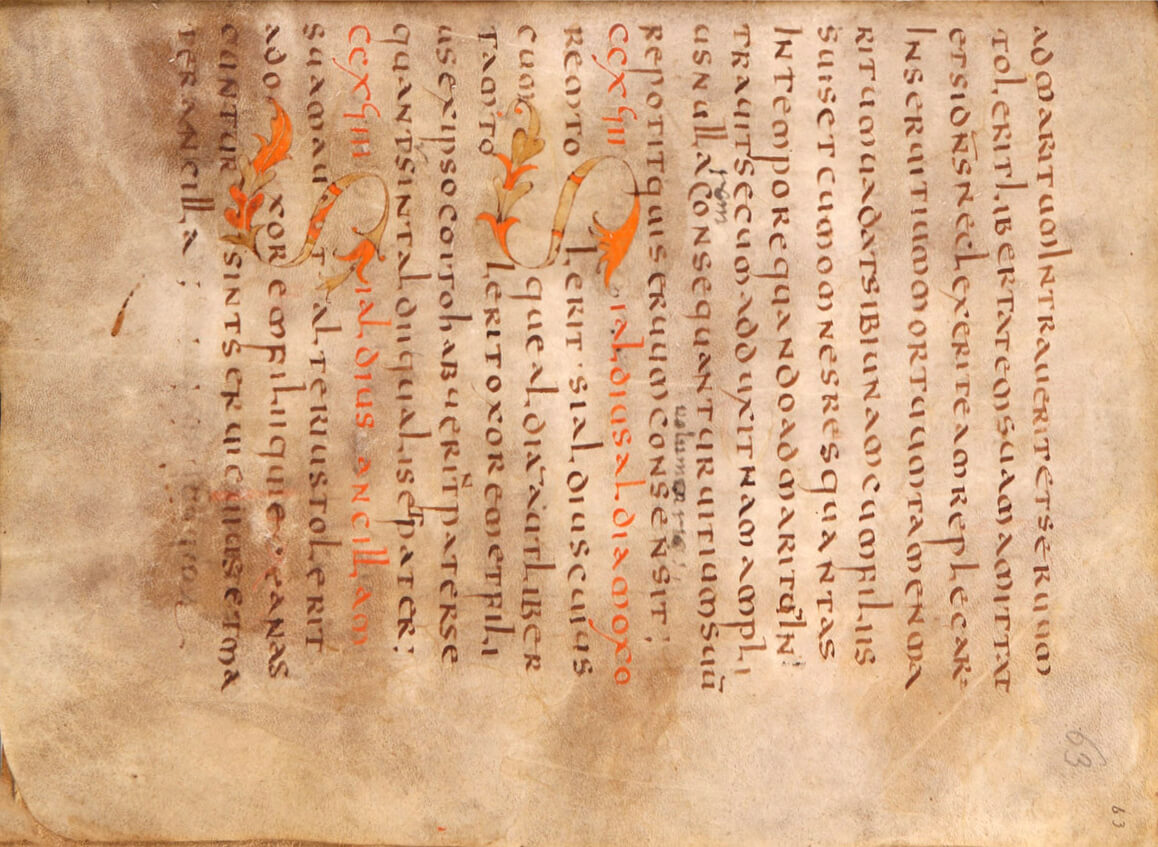 63
63
admaritumIntraueritetseruum
toleritlibertatemsuamamittat
etsidn̄sneclexeriteamreplecar
Inseruitiummortuumtamenma
ritumuadatsibiunamcumfiliis
suisetcumomnesresquantas
Intemporequandoadmaritū In
trauitsecumadduxitnamampli
rem
usnullaconsequanturuitiumsuū
repotitquiseruumconsensit;
ccxỼIII Sialdiusaldiamoxo
remtolerit·sialdiuscuius
cumquealdiāautliber
tamtoleritoxoremetfili
usexipsocoitohabuerint̄paterse
quantpsintaldiiqualisetpater;
ccxỼIIII Sialdius ancillam
suamaut alteriustolerit
adoxoremfiliiquiexeanas
cunturSintseruicuiusetma
terancilla;